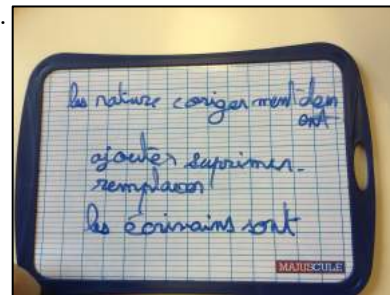 les nature coriger ment dem
ont
ajouter suprimer-
remplacer
les écrivains sont
MAJUSCULE